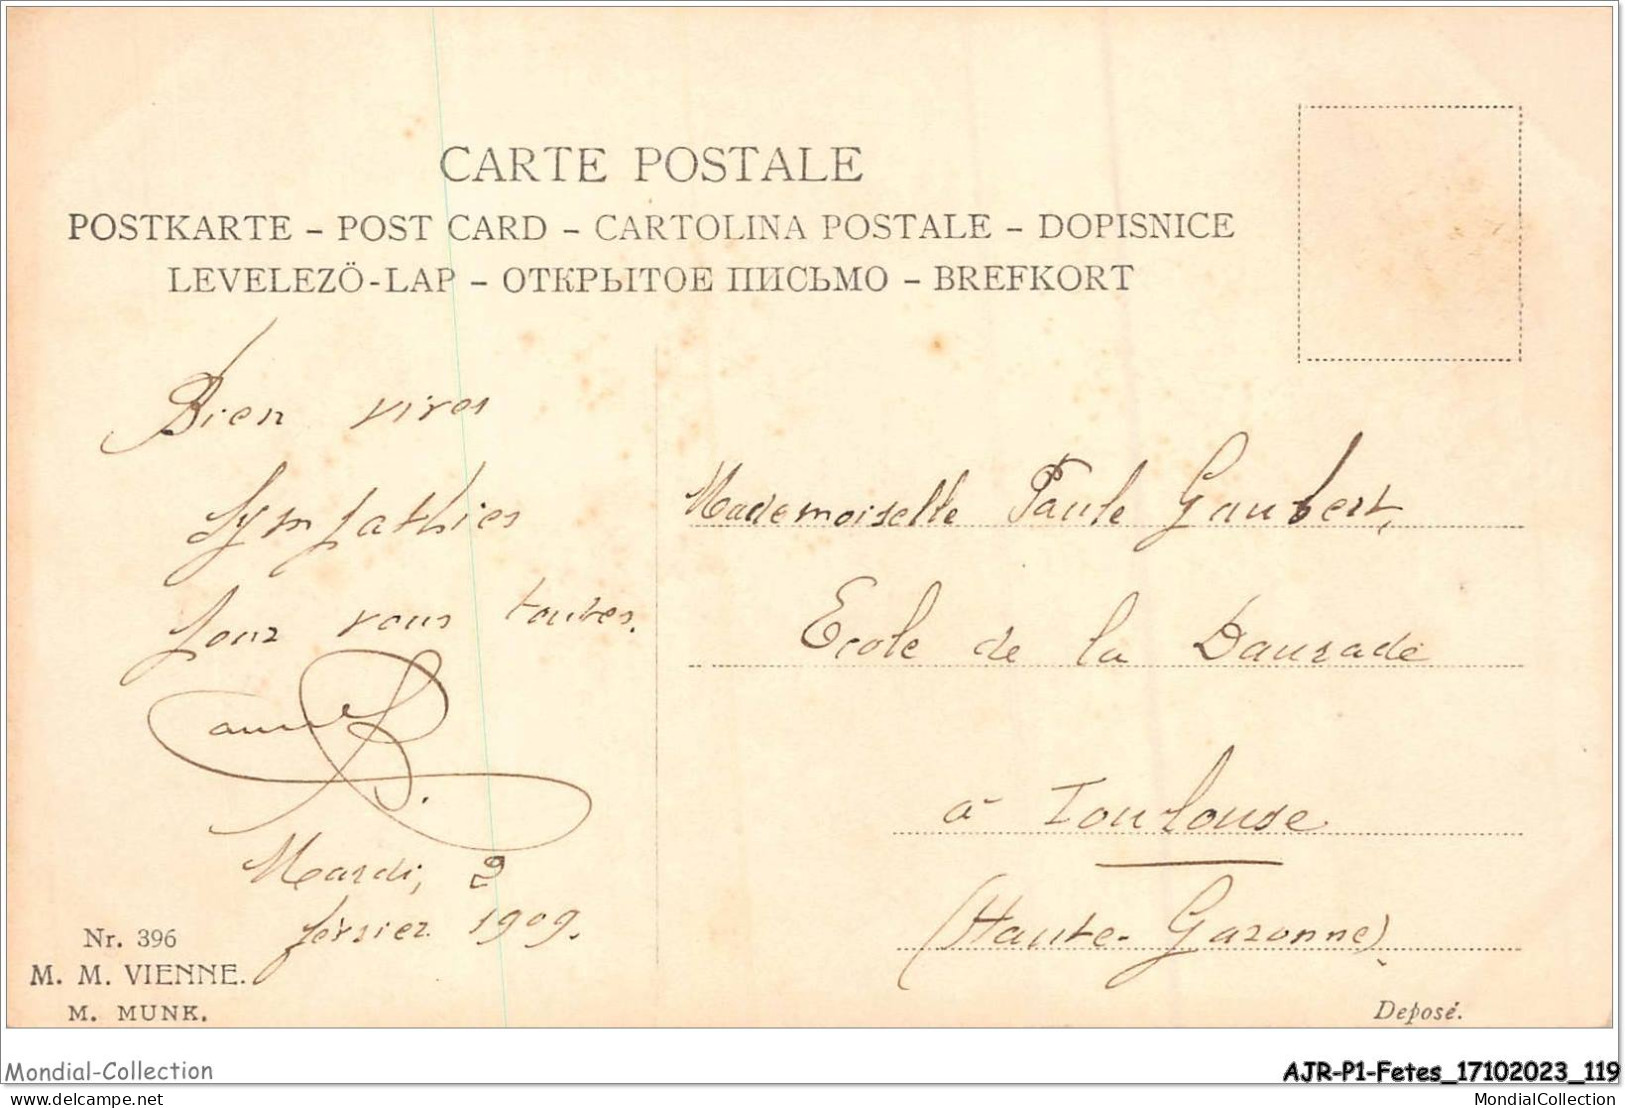 CARTE POSTALE
POSTKARTE – POST CARD – CARTOLINA POSTALE – DOPISNICE
LEVELEZÖ-LAP – ОТКРЫТОЕ ПИСЬМО – BREFKORT
Bien vives
sympathies
pour vous toutes.
Mardi, 2
février 1909.
Mademoiselle Paule Gaubert,
Ecole de la Daurade
à Toulouse
(Haute-Garonne)
Nr. 396
M. M. VIENNE.
M. MUNK.
Deposé.
Mondial-Collection
AJR-P1-Fetes_17102023_119
delcampe.net
MondialCollection